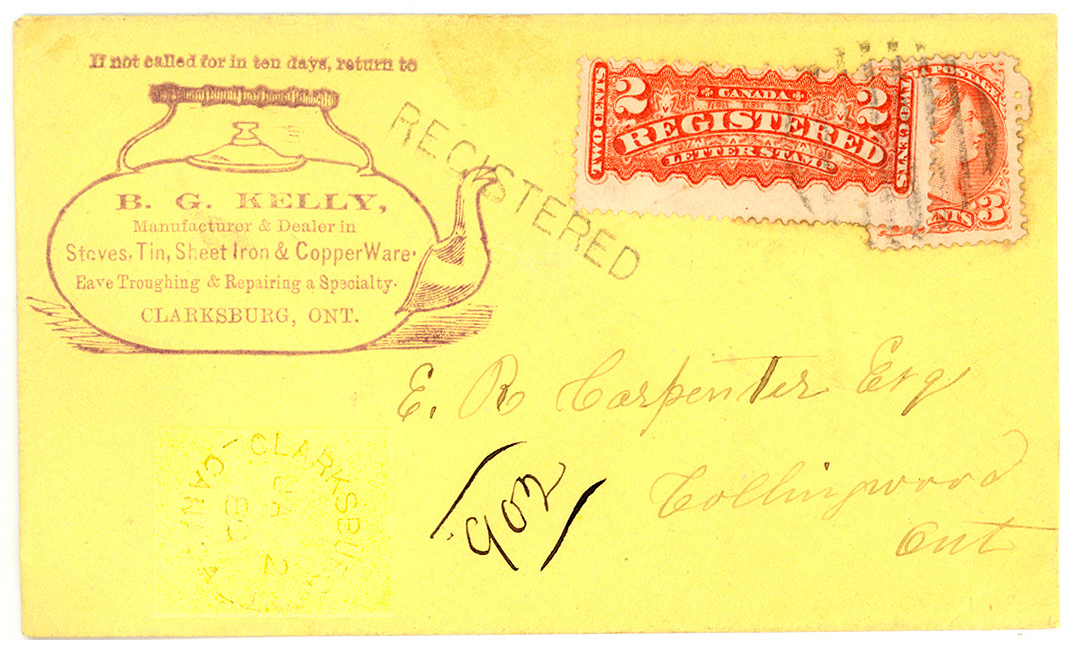 If not called for in ten days, return to
B. G. KELLY,
Manufacturer & Dealer in
Stoves, Tin, Sheet Iron & Copper Ware.
Eave Troughing & Repairing a Specialty.
CLARKSBURG, ONT.
REGISTERED
TWO CENTS
2
CANADA
2
REGISTERED
LETTER STAMP
TWO CENTS
POSTAGE
3
E. R. Carpenter Esq
Collingwood
Ont
902
CLARKSBU
JA 2
80